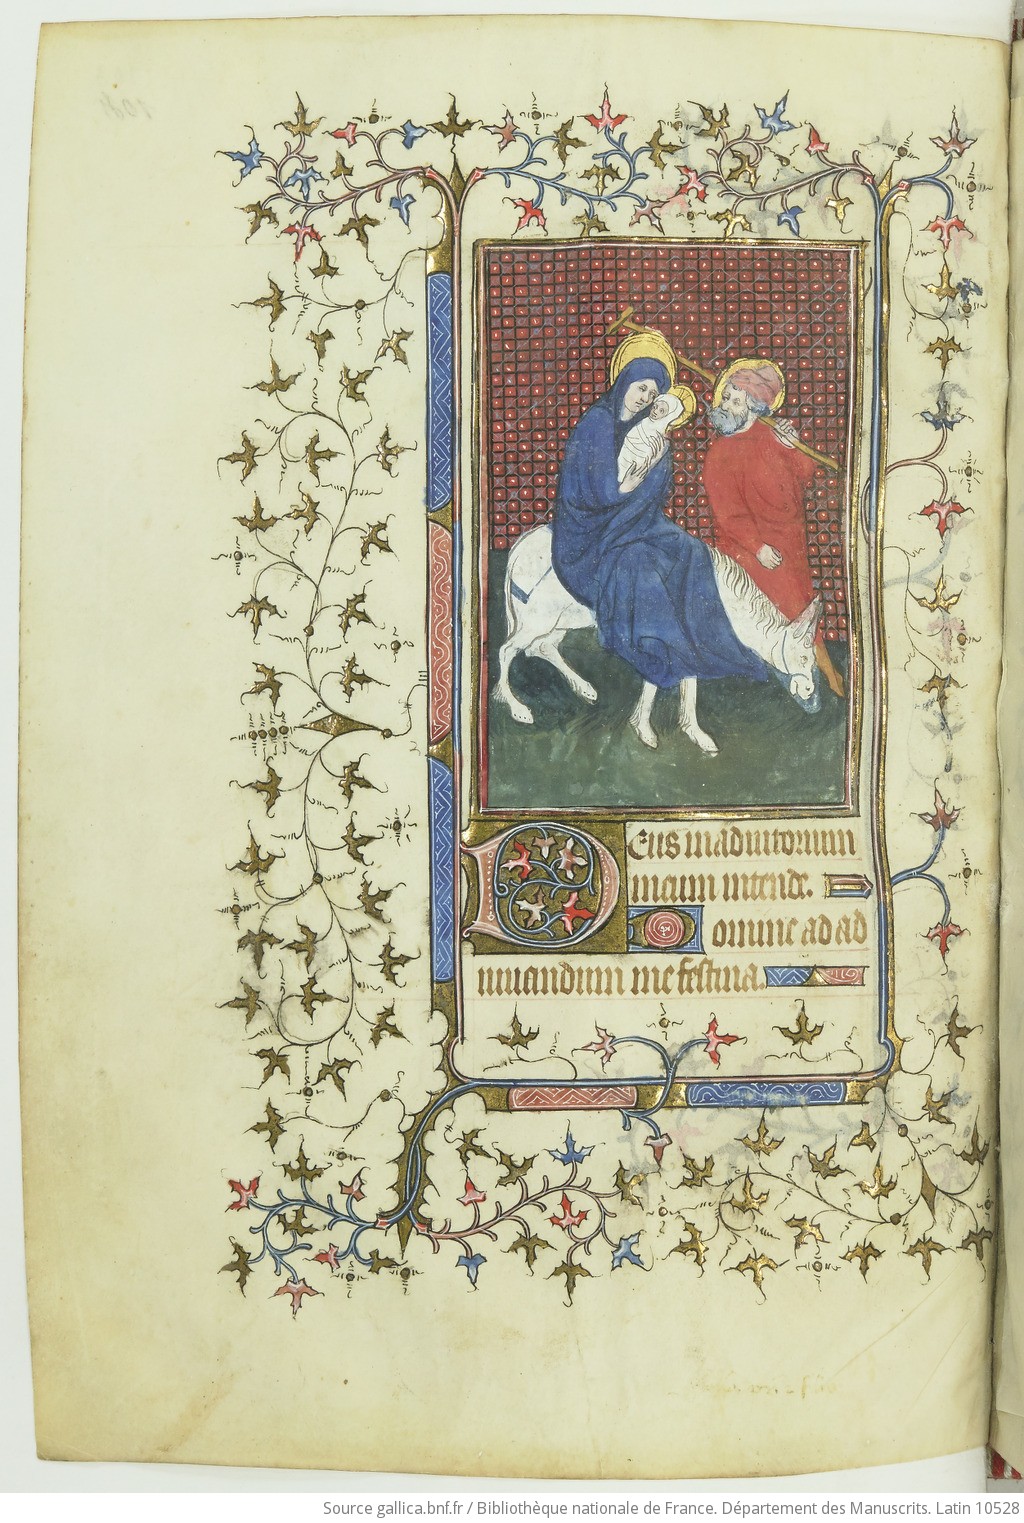 Deus in adiutorium
meum intende.
Domine ad ad
iuuandum me festina.
Source gallica.bnf.fr / Bibliothèque nationale de France. Département des Manuscrits. Latin 10528